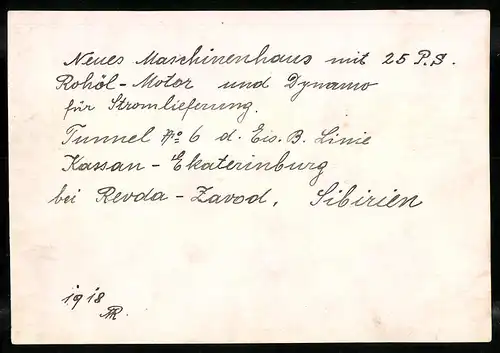 Neues Maschinenhaus mit 25 P.S.
Rohöl - Motor und Dynamo
für Stromlieferung.
Tunnel No 6 d. Eis. B. Linie
Kassan - Ekaterinburg
bei Revda - Zavod, Sibirien
1918